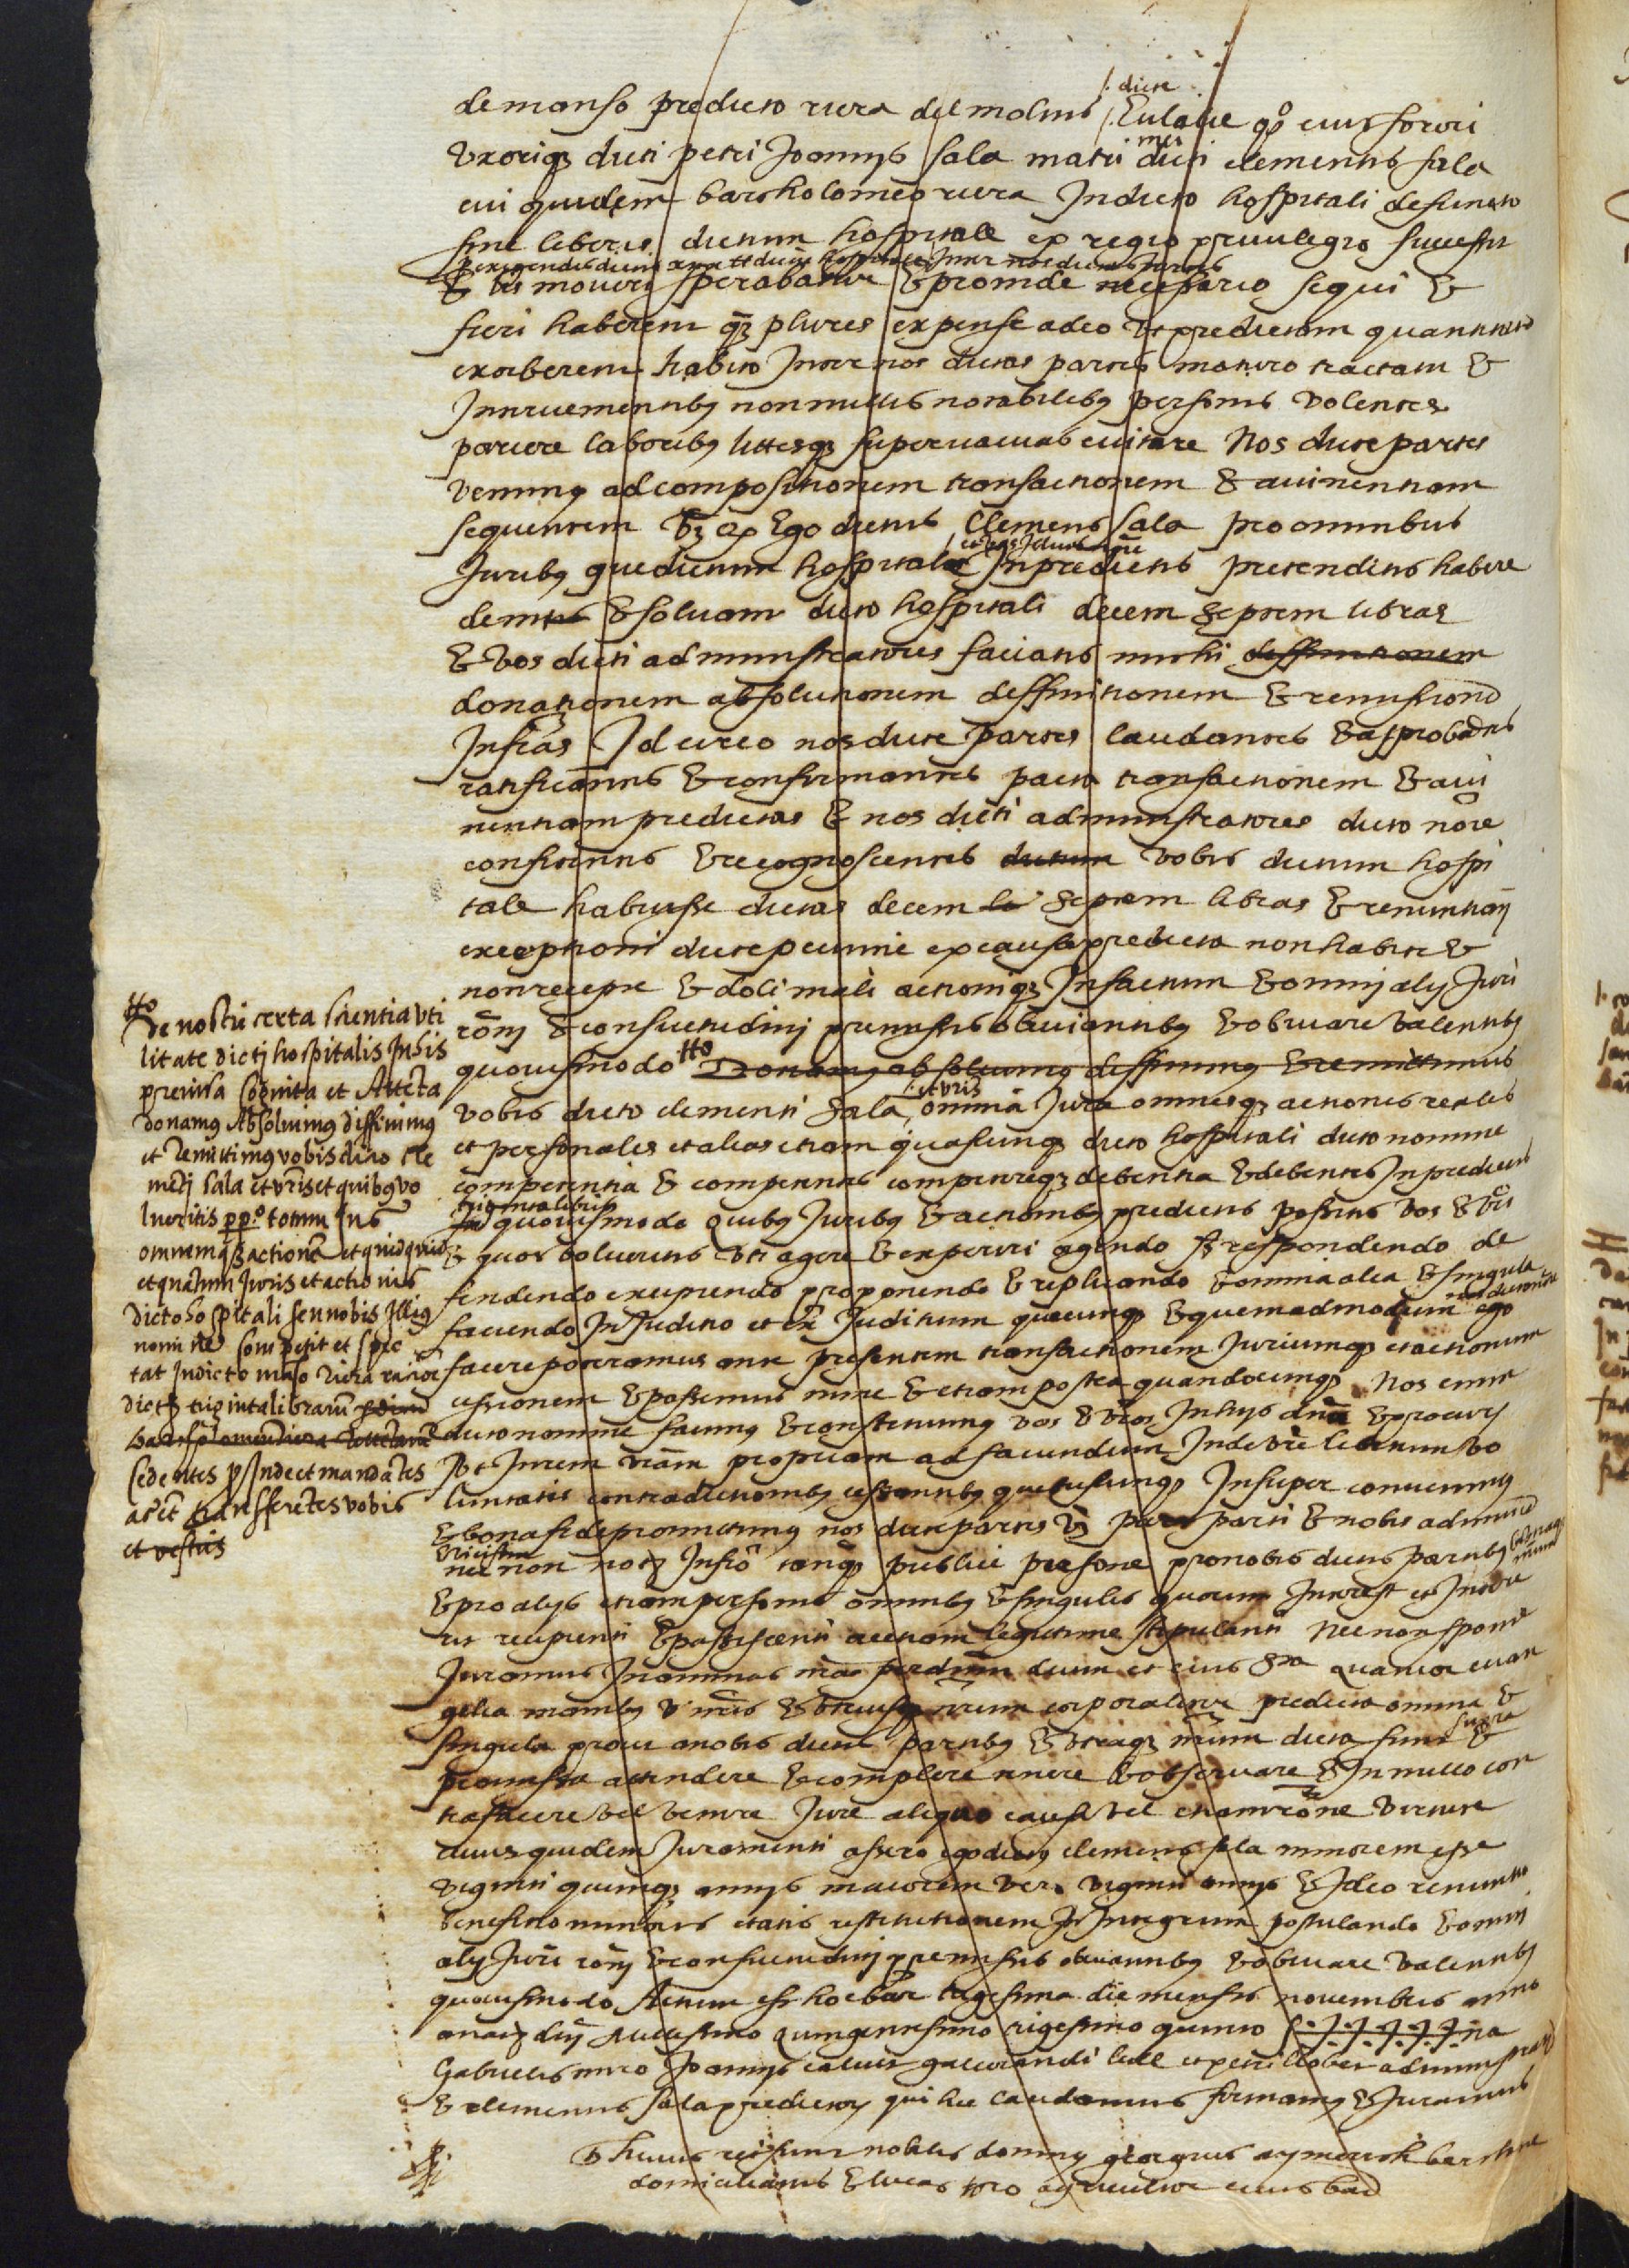 de manso predicto riera del molins /. dicte Eulalie qº eius sorori
Uxoriqz dicti petri Joannis sala matri mei dicti clementis sala
cui quidem bartholomeo riera In dicto hospitali defuncto
sine liberis dictum hospitale ex regio privilegio successit
& lis moveri sperabatur & proinde necessario sequi &
fieri haberent qz plures expense adeo vt predictam quantitatem
exorberent habito Inter nos dictas partes maturo tractatu &
Interuenientibz nonnullis notabilibz personis Volentes
parcere laboribz littesqz superuacuas euitare Nos dicte partes
venimus ad compositionem transactionem & auinentiam
sequentem Vz qp Ego dictus Clemens Sala pro omnibus
Juribz que dictum hospitale In predictis pretenditis habere
dem & soluam dicto hospitali decem septem libras
& vos dicti administratores faciatis michi deffinitionem
donationem absolutionem deffinitionem & remissionem
Infras Idcirco nos dicte partes laudantes & approbantes
ratificantes & confirmantes pacta transactionem & aui
nentiam predictas & nos dicti administratores dicto noie
confitentes & recognoscentes dictum vobis dictum hospi
tale habuisse dictas decem li septem libras & renuntiam
exceptioni dicte pecunie ex causa predicta non habite &
non recepte & doli mali actioniqz In factum & omnij alij Juri
roni & consuetudinj premissis obuiantibz & obuiare valentibz
quouismodo Donamus absoluimus deffinimus & remittimus
vobis dicto clementi Sala, et vris omnia Jura omnesqz actiones reales
et personales et alias etiam quascunqz dicto hospitali dicto nomine
competentia & competentes competereqz debentia & debentes In predictis
triginta libris quouismodo Quibz Juribz & actionibz predictis possitis vos & vri
& quos volueritis vti agere & experiri agendo & respondendo de
fendendo excipiendo proponendo & replicando & omnia alia & singula
faciendo In Juditio et ex Juditium quecunqz & quemadmodum ego
facere poteramus ante presentem transactionem Juriumqz et actionum
cessionem & possemus nunc & etiam postea quandocunqz Nos enim
dicto nomine facimus & constituimus vos & vros In hijs dnos & procures
Vt In rem vram propriam ad faciendum Inde vre libitum vo
luntatis contradictionibz cessantibz quibuscunqz Insuper conuenimus
& bona fide promittimus nos dicte partes Vz pars parti & nobis adinuicem
nec non notº Infro tanqz publice persone pro nobis dictis partibz
& pro alijs etiam personis omnibz & singulis quorum Interest et Intere
rit recipienti & paciscenti ac etiam legittime stipulanti Nec non sponte
Juramus In animas nras per dnum deum et eius Sta quatuor euan
gelia manibz nris & vtriusqz nrum corporaliter predicta omnia &
singula prout a nobis dictis partibz & vtraqz nrum dicta sunt supra &
promissa attendere & complere tenere & obseruare & In nullo con
trafacere vel venire Jure aliquo causa vel etiam rone Virtute
cuius quidem Juramenti assero ego dictus clemens sala minorem esse
viginti quinqz annis maiorem vero viginti annis & Ideo renuntio
beneficio minoris etatis restitutionem In Integrum postulando & omni
alij Juri ronj & consuetudinj premissis obuiantibz & obuiare valentibz
quouismodo Actum est hoc bar trigesima die mensis nouembris anno
a natz dnj Millesimo quingentesimo trigesimo quinto S.J.J.J.J.J.na
Gabrielis miro Joannis caluet galcerandi lull et petri llobet administratorz
& clementis sala predictorz qui hec laudamus firmamus & Juramus
Ts huius rei sunt nobilis dominus georgius aymerich barchne
domiciliatus & lucas toro agricultor ciuis barch
De nostri certa scientia vti
litate dictj hospitalis In his
premissa Cognita et Attecta
donamus Absoluimus diffinimus
et remittimus vobis dicto cle
mentj sala et vris et quibus vo
lueritis ppº totum Jus
omnemqz actione et quidquid
et quantum Juris et actionis
dicto hospitali seu nobis Illius
nomine Competit et spec
tat In dicto manso riera ratione
dictarz triginta librarum
bartholomeu riera
cedentes pInde et mandantes
ac et transferentes vobis
et vestris